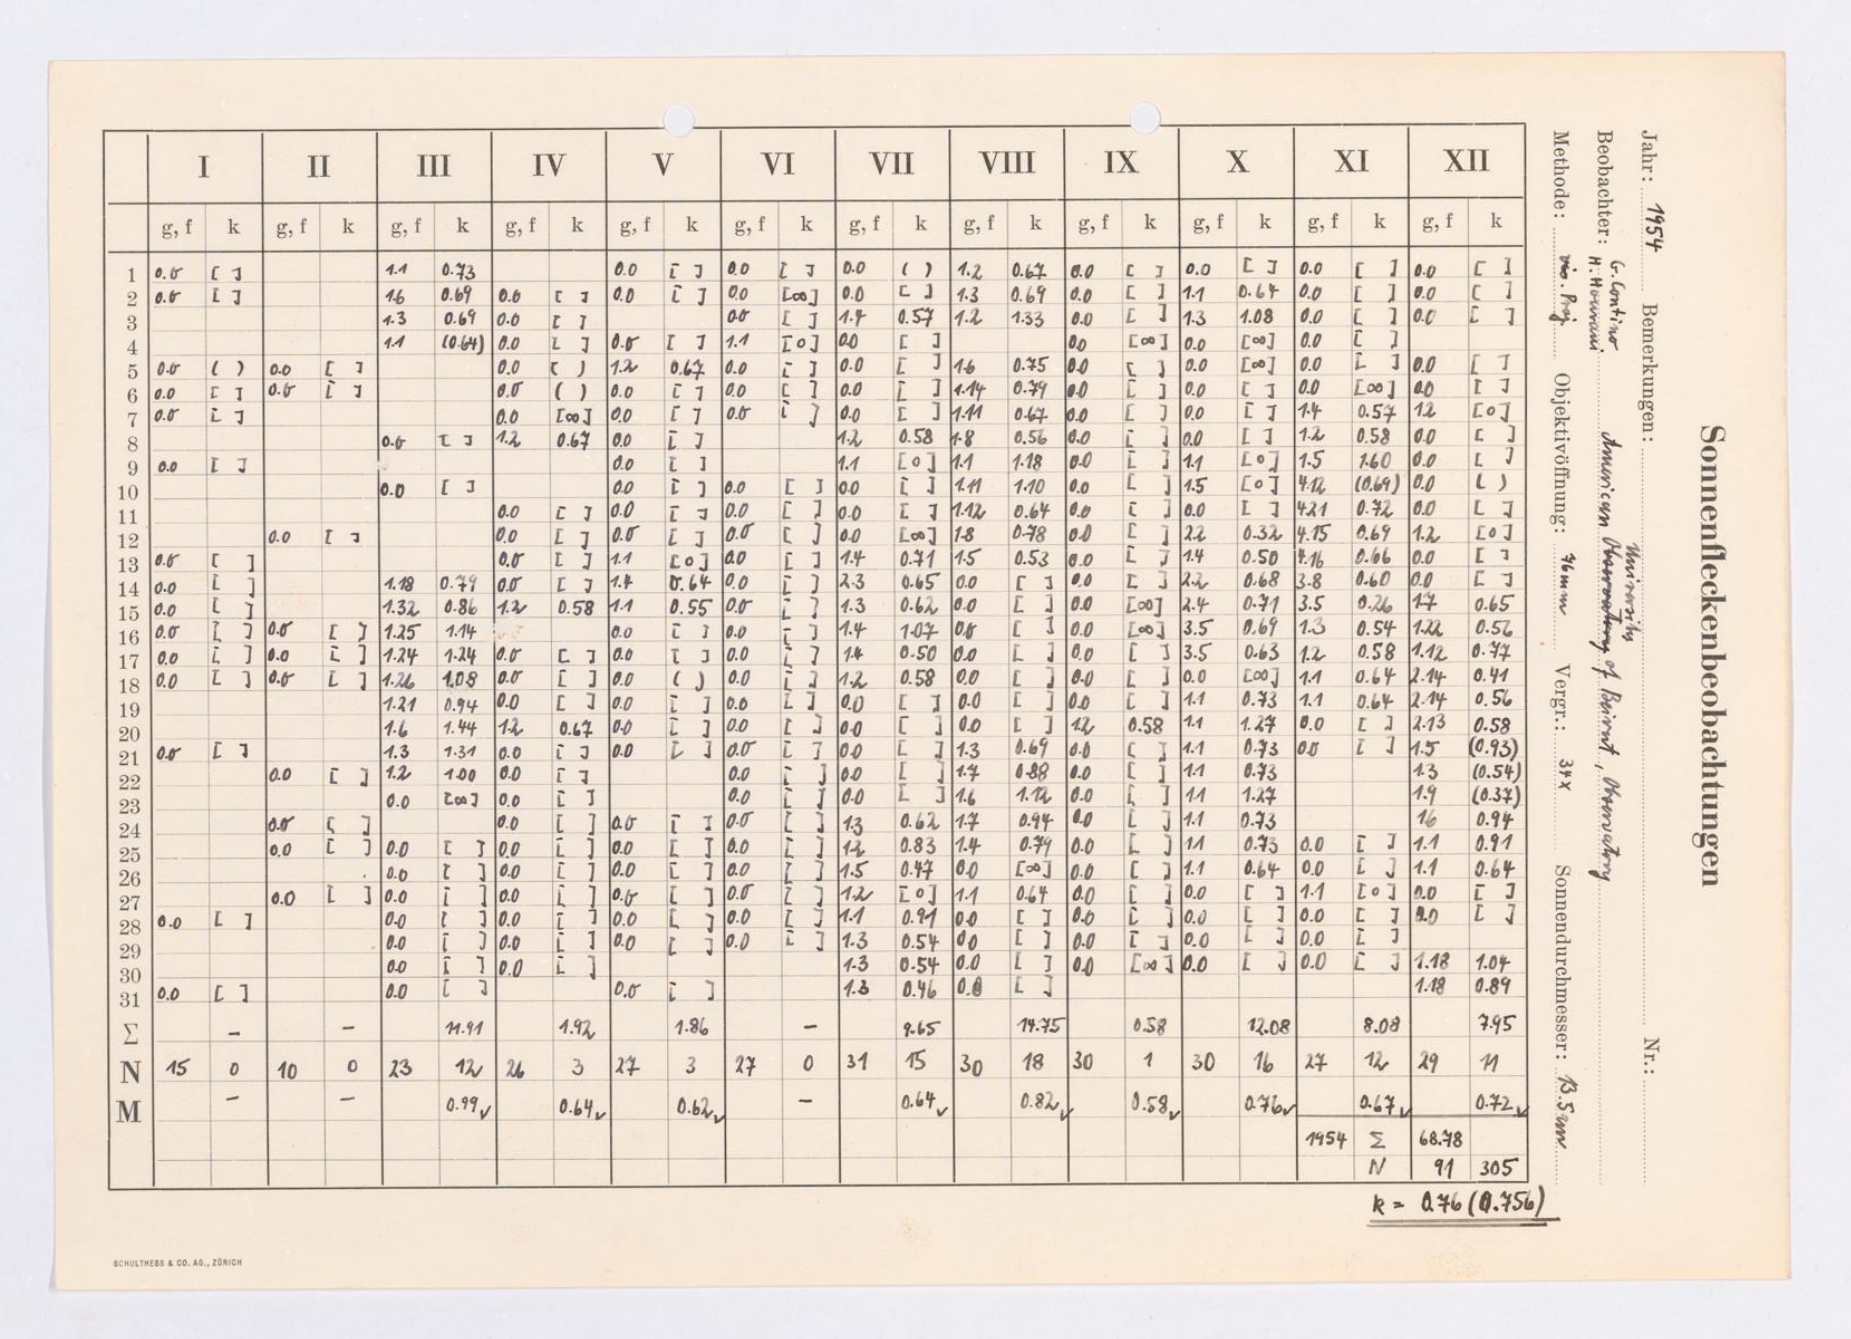 Sonnenfleckenbeobachtungen
Jahr: 1954 Bemerkungen: Nr.:
Beobachter: G. Contino
H. Hourani American University of Beirut, Observatory
Methode: vis. Proj. Objektivöffnung: 76mm Vergr.: 34x Sonnendurchmesser: 13.5 cm
I II III IV V VI VII VIII IX X XI XII
g, f k g, f k g, f k g, f k g, f k g, f k g, f k g, f k g, f k g, f k g, f k g, f k
1 0.0 [ ] 1.1 0.73 0.0 [ ] 0.0 [ ] 0.0 ( ) 1.2 0.67 0.0 [ ] 0.0 [ ] 0.0 [ ] 0.0 [ ]
2 0.0 [ ] 1.6 0.69 0.0 [ ] 0.0 [ ] 0.0 [∞] 0.0 [ ] 1.3 0.69 0.0 [ ] 1.1 0.64 0.0 [ ] 0.0 [ ]
3 1.3 0.69 0.0 [ ] 0.0 [ ] 1.4 0.57 1.2 1.33 0.0 [ ] 1.3 1.08 0.0 [ ] 0.0 [ ]
4 1.1 (0.64) 0.0 [ ] 0.0 [ ] 1.1 [0] 0.0 [ ] 0.0 [∞] 0.0 [∞] 0.0 [ ]
5 0.0 ( ) 0.0 [ ] 0.0 ( ) 1.2 0.67 0.0 [ ] 0.0 [ ] 1.6 0.75 0.0 [ ] 0.0 [∞] 0.0 [ ] 0.0 [ ]
6 0.0 [ ] 0.0 [ ] 0.0 ( ) 0.0 [ ] 0.0 [ ] 0.0 [ ] 1.14 0.79 0.0 [ ] 0.0 [ ] 0.0 [∞] 0.0 [ ]
7 0.0 [ ] 0.0 [∞] 0.0 [ ] 0.0 [ ] 0.0 [ ] 1.11 0.67 0.0 [ ] 0.0 [ ] 1.4 0.57 1.2 [0]
8 0.0 [ ] 1.2 0.67 0.0 [ ] 1.2 0.58 1.8 0.56 0.0 [ ] 0.0 [ ] 1.2 0.58 0.0 [ ]
9 0.0 [ ] 0.0 [ ] 1.1 [0] 1.1 1.18 0.0 [ ] 1.1 [0] 1.5 1.60 0.0 [ ]
10 0.0 [ ] 0.0 [ ] 0.0 [ ] 0.0 [ ] 1.11 1.10 0.0 [ ] 1.5 [0] 4.12 (0.69) 0.0 ( )
11 0.0 [ ] 0.0 [ ] 0.0 [ ] 0.0 [ ] 1.12 0.64 0.0 [ ] 0.0 [ ] 4.21 0.72 0.0 [ ]
12 0.0 [ ] 0.0 [ ] 0.0 [ ] 0.0 [ ] 0.0 [∞] 1.8 0.78 0.0 [ ] 2.2 0.32 4.15 0.69 1.2 [0]
13 0.0 [ ] 0.0 [ ] 1.1 [0] 0.0 [ ] 1.4 0.71 1.5 0.53 0.0 [ ] 1.4 0.50 4.16 0.66 0.0 [ ]
14 0.0 [ ] 1.18 0.79 0.0 [ ] 1.4 0.64 0.0 [ ] 2.3 0.65 0.0 [ ] 0.0 [ ] 2.2 0.68 3.8 0.60 0.0 [ ]
15 0.0 [ ] 1.32 0.86 1.2 0.58 1.1 0.55 0.0 [ ] 1.3 0.62 0.0 [ ] 0.0 [∞] 2.4 0.71 3.5 0.26 1.7 0.65
16 0.0 [ ] 0.0 [ ] 1.25 1.14 0.0 [ ] 0.0 [ ] 1.4 1.07 0.0 [ ] 0.0 [∞] 3.5 0.69 1.3 0.54 1.22 0.56
17 0.0 [ ] 0.0 [ ] 1.24 1.24 0.0 [ ] 0.0 [ ] 0.0 [ ] 1.4 0.50 0.0 [ ] 0.0 [ ] 3.5 0.63 1.2 0.58 1.12 0.77
18 0.0 [ ] 0.0 [ ] 1.26 1.08 0.0 [ ] 0.0 ( ) 0.0 [ ] 1.2 0.58 0.0 [ ] 0.0 [ ] 0.0 [∞] 1.1 0.64 2.14 0.41
19 1.21 0.94 0.0 [ ] 0.0 [ ] 0.0 [ ] 0.0 [ ] 0.0 [ ] 0.0 [ ] 1.1 0.73 1.1 0.64 2.14 0.56
20 1.6 1.44 1.2 0.67 0.0 [ ] 0.0 [ ] 0.0 [ ] 0.0 [ ] 1.2 0.58 1.1 1.27 0.0 [ ] 2.13 0.58
21 0.0 [ ] 1.3 1.31 0.0 [ ] 0.0 [ ] 0.0 [ ] 0.0 [ ] 1.3 0.69 0.0 [ ] 1.1 0.73 0.0 [ ] 1.5 (0.93)
22 0.0 [ ] 1.2 1.00 0.0 [ ] 0.0 [ ] 0.0 [ ] 1.7 0.88 0.0 [ ] 1.1 0.73 1.3 (0.54)
23 0.0 [∞] 0.0 [ ] 0.0 [ ] 0.0 [ ] 1.6 1.12 0.0 [ ] 1.1 1.27 1.9 (0.37)
24 0.0 [ ] 0.0 [ ] 0.0 [ ] 0.0 [ ] 1.3 0.62 1.7 0.94 0.0 [ ] 1.1 0.73 1.6 0.94
25 0.0 [ ] 0.0 [ ] 0.0 [ ] 0.0 [ ] 0.0 [ ] 1.2 0.83 1.4 0.79 0.0 [ ] 1.1 0.73 0.0 [ ] 1.1 0.91
26 0.0 [ ] 0.0 [ ] 0.0 [ ] 0.0 [ ] 1.5 0.47 0.0 [∞] 0.0 [ ] 1.1 0.64 0.0 [ ] 1.1 0.64
27 0.0 [ ] 0.0 [ ] 0.0 [ ] 0.0 [ ] 0.0 [ ] 1.2 [0] 1.1 0.64 0.0 [ ] 0.0 [ ] 1.1 [0] 0.0 [ ]
28 0.0 [ ] 0.0 [ ] 0.0 [ ] 0.0 [ ] 0.0 [ ] 1.1 0.91 0.0 [ ] 0.0 [ ] 0.0 [ ] 0.0 [ ] 0.0 [ ]
29 0.0 [ ] 0.0 [ ] 0.0 [ ] 0.0 [ ] 1.3 0.54 0.0 [ ] 0.0 [ ] 0.0 [ ] 0.0 [ ]
30 0.0 [ ] 0.0 [ ] 1.3 0.54 0.0 [ ] 0.0 [∞] 0.0 [ ] 0.0 [ ] 1.18 1.04
31 0.0 [ ] 0.0 [ ] 0.0 [ ] 1.3 0.46 0.0 [ ] 1.18 0.89
Σ – – 11.91 1.92 1.86 – 9.65 14.75 0.58 12.08 8.08 7.95
N 15 0 10 0 23 12 26 3 27 3 27 0 31 15 30 18 30 1 30 16 27 12 29 11
M – – 0.99✓ 0.64✓ 0.62✓ – 0.64✓ 0.82✓ 0.58✓ 0.76✓ 0.67✓ 0.72✓
1954 Σ 68.78
N 91 305
k = 0.76 (0.756)
SCHULTHESS & CO. AG., ZÜRICH